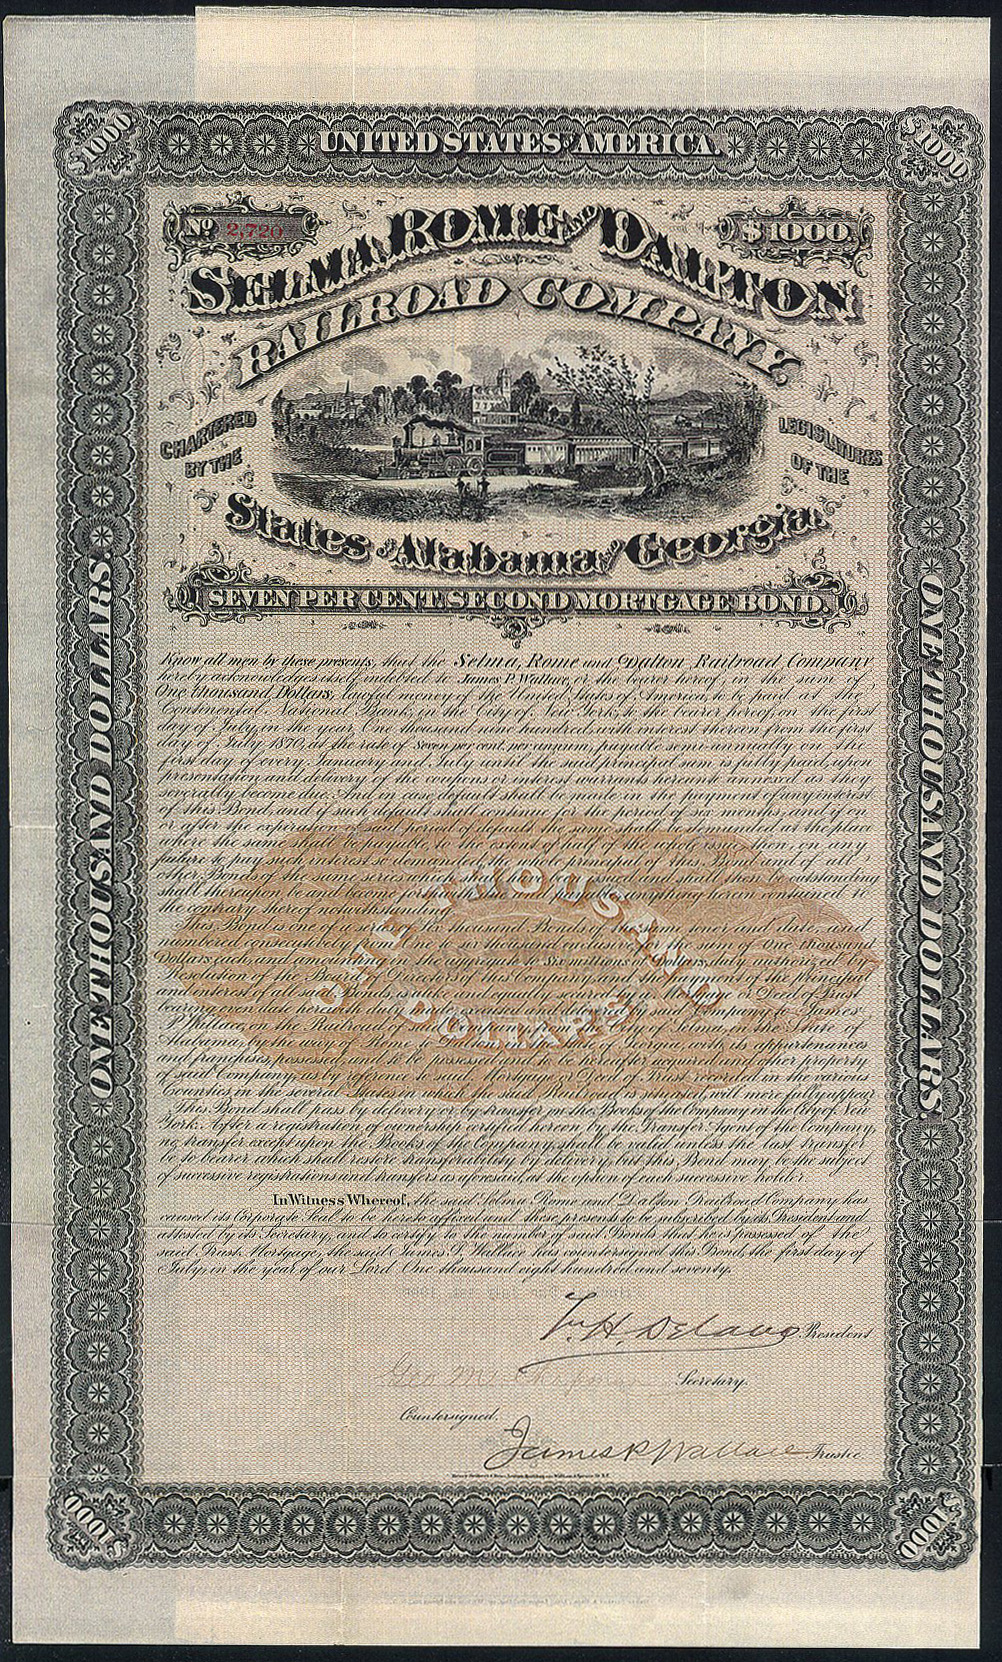 $1000
UNITED STATES OF AMERICA.
$1000
No 2,720
$1000.
SELMA, ROME AND DALTON
RAILROAD COMPANY
CHARTERED
BY THE
LEGISLATURES
OF THE
States of Alabama and Georgia.
SEVEN PER CENT. SECOND MORTGAGE BOND.
ONE THOUSAND DOLLARS.
ONE THOUSAND DOLLARS.
Know all men by these presents, that the Selma, Rome and Dalton Railroad Company
hereby acknowledges itself indebted to James P. Wallace, or the bearer hereof, in the sum of
One thousand Dollars, lawful money of the United States of America, to be paid at the
Continental National Bank, in the City of New York, to the bearer hereof, on the first
day of July, in the year, One thousand nine hundred, with interest thereon from the first
day of July 1870, at the rate of Seven per cent. per annum, payable semi-annually on the
first day of every January and July until the said principal sum is fully paid, upon
presentation and delivery of the coupons or interest warrants hereunto annexed as they
severally become due. And in case default shall be made in the payment of any interest
of this Bond, and if such default shall continue for the period of six months, and if on
or after the expiration of said period of default, the same shall be demanded at the place
where the same shall be payable, to the extent of half of the whole issue, then on any
failure to pay such interest so demanded, the whole principal of this Bond and of all
other Bonds of the same series which shall have been issued and shall then be outstanding
shall thereupon be and become forthwith due and payable, anything herein contained to
the contrary thereof notwithstanding.
This Bond is one of a series of Six thousand Bonds of the same tenor and date, and
numbered consecutively from One to six thousand inclusive, for the sum of One thousand
Dollars each, and amounting in the aggregate to Six millions of Dollars, duly authorized by
Resolution of the Board of Directors of this Company and the payment of the Principal
and interest of all said Bonds, is alike and equally secured by a Mortgage or Deed of Trust
bearing even date herewith duly executed and delivered by said Company to James
P. Wallace, on the Railroad of said Company from the City of Selma in the State of
Alabama, by the way of Rome to Dalton in the State of Georgia, with its appurtenances
and franchises, possessed, and to be possessed, and to be hereafter acquired, and other property
of said Company, as by reference to said Mortgage or Deed of Trust recorded in the various
Counties in the several States in which the said Railroad is situated, will more fully appear.
This Bond shall pass by delivery or by transfer on the Books of the Company in the City of New
York. After a registration of ownership certified hereon by the Transfer Agent of the Company,
no transfer except upon the Books of the Company, shall be valid unless the last transfer
be to bearer which shall restore transferability by delivery, but this Bond may be the subject
of successive registrations and transfers as aforesaid, at the option of each successive holder.
In Witness Whereof, the said Selma, Rome and Dalton Railroad Company has
caused its Corporate Seal to be hereto affixed and these presents to be subscribed by its President and
attested by its Secretary, and to certify to the number of said Bonds that he is possessed of the
said Trust Mortgage, the said James P. Wallace has countersigned this Bond, the first day of
July, in the year of our Lord One thousand eight hundred and seventy.
ONE THOUSAND
DOLLARS
F. H. Delano President
Geo. M. Chapman Secretary.
Countersigned.
James P. Wallace Trustee
$1000
$1000